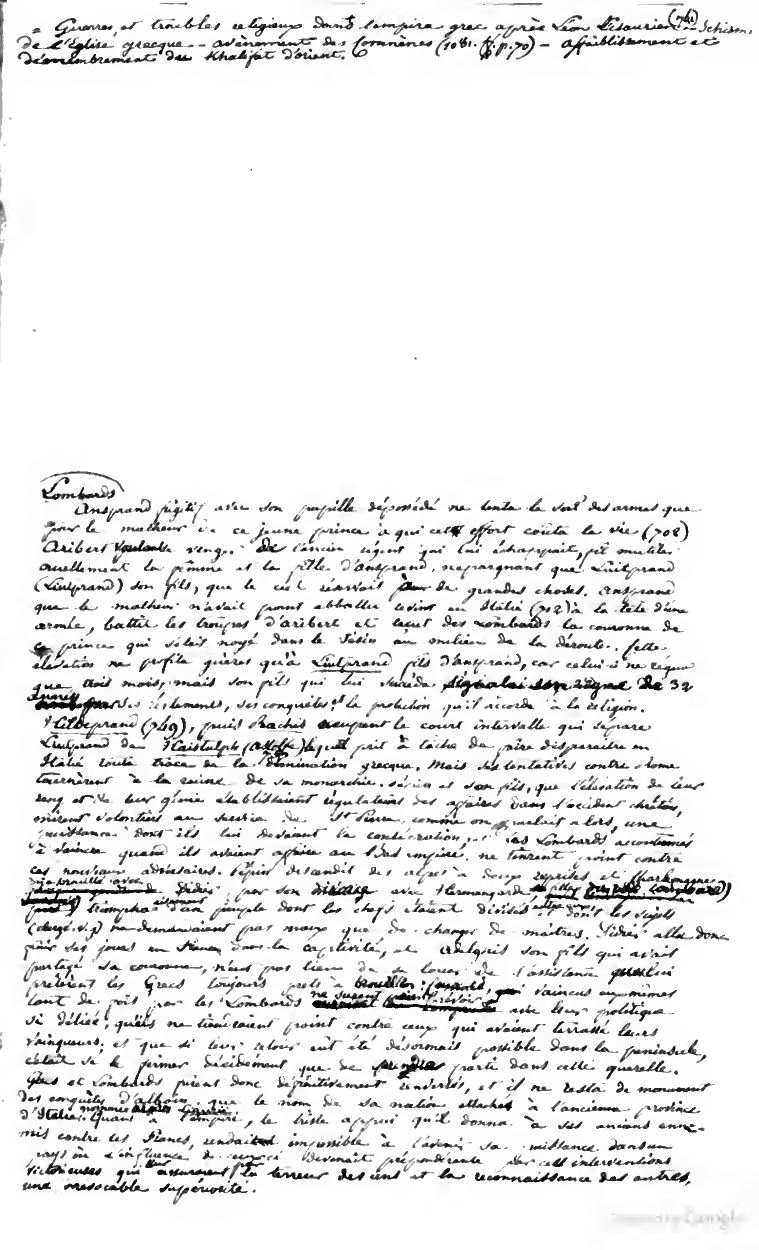 = Guerres, et troubles religieux dans l'empire grec après Léon l'Isaurien (741) - Schisme
de l'Église grecque - avènement des Comnènes (1081. p. 70) - affaiblissement et
démembrement du Khalifat d'orient.
Lombards
Ansprand fugitif avec son pupille dépossédé ne tenta le sort des armes que
pour le malheur de ce jeune prince à qui cet effort coûta la vie (702)
Aribert voulant se venger de l'ancien régent qui lui échappait, fit mutiler
cruellement la femme et la fille d'ansprand, n'epargnant que Luitprand
(Liutprand) son fils, que le ciel réservait pour de grandes choses. Ansprand
que le malheur n'avait point abbattu revint en Italie (712) à la tête d'une
armée, battit les troupes d'aribert et reçut des Lombards la couronne de
ce prince qui s'était noyé dans le Tésin au milieu de la déroute. Cette
élévation ne profita guères qu'à Luitprand fils d'ansprand, car celui-ci ne régna
que trois mois, mais son fils qui lui succéda signala son règne de 32
années par ses règlements, ses conquêtes et la protection qu'il accorda à la religion.
Hildeprand (749), puis Rachis occupent le court intervalle qui sépare
Luitprand de Haistulph (Astolfe) lequel prit à tâche de faire disparaitre en
Italie toute trace de la domination grecque. Mais ses tentatives contre Rome
tournèrent à la ruine de sa monarchie. Pépin et son fils, que l'élévation de leur
rang et de leur génie établissaient régulateurs des affaires dans l'occident chrétien,
mirent volontiers au service de St Pierre, comme on parlait alors, une
puissance dont ils lui devaient la consécration, et les Lombards accoutumés
à vaincre quand ils avaient affaire au Bas empire, ne tinrent point contre
ces nouveaux adversaires. Pépin descendit des alpes à deux reprises et Charlemagne
brouillé avec Didier par son divorce avec Hermengarde sa fille
triompha aisément d'un peuple dont les chefs étaient divisés et dont les sujets
ne demandaient pas mieux que de changer de maîtres. Didier alla donc
finir ses jours en France dans la captivité, et Adelgis son fils qui avait
partagé sa couronne, n'eut pas lieu de se louer de l'assistance que lui
prêtèrent les Grecs toujours prêts à brouiller; vaincus eux-mêmes
tant de fois par les Lombards ne surent point prévoir avec leur politique
si déliée, qu'ils ne tiendraient point contre ceux qui avaient terrassé leurs
vainqueurs, et que si leur retour eût été désormais possible dans la peninsule,
c'était se le fermer décidément que de prendre parti dans cette querelle.
Grecs et Lombards furent donc définitivement renversés, et il ne resta de monument
des conquêtes d'alboin que le nom de sa nation attaché à l'ancienne province
d'Italie. Quant à l'empire, le triste appui qu'il donna à ses anciens enne-
mis contre les Francs, rendait impossible à l'avenir sa puissance dans un
pays où l'influence de ceux-ci devenait prépondérante par cette interventions
victorieuses qui leur assuraient la terreur des uns et la reconnaissance des autres,
une irrésocable supériorité.